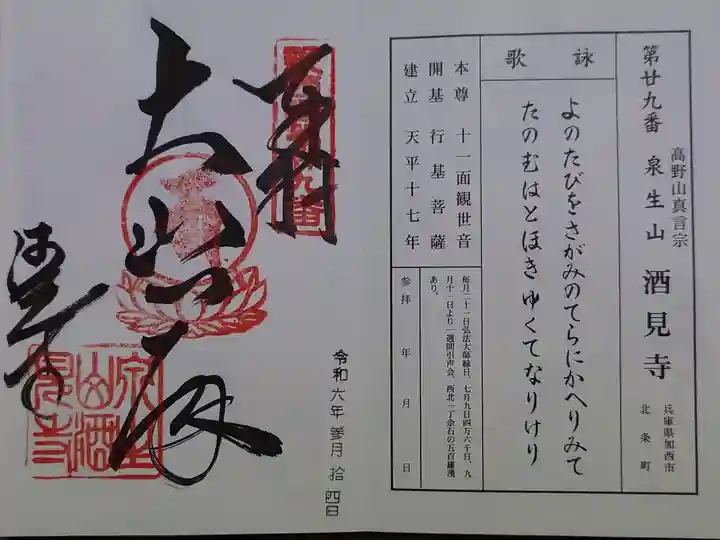 第廿九番
高野山真言宗
泉生山 酒見寺
兵庫県加西市
北条町
詠歌
よのたびをさがみのてらにかへりみて
たのむはとほきゆくてなりけり
本尊 十一面観世音
開基 行基菩薩
建立 天平十七年
毎月二十一日弘法大師縁日、七月九日四万六千日、九
月十一日より一週間引声会、西北二丁余石の五百羅漢
あり。
参拝 年 月 日
奉拝
大悲殿
酒見寺
泉生
山酒
見寺
令和六年 参月 拾四日